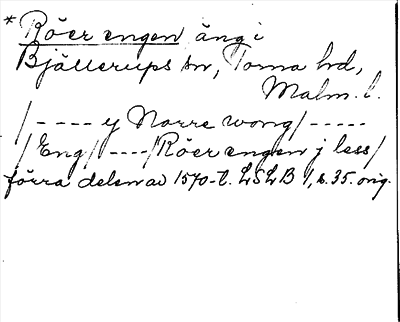 * Röer engen äng i
Bjällerups sn, Torna hd,
Malm. l.
/ - - - - y Norre wong / - - - - -
/ Eng / - - - - / Röer engen j less /
förra delen av 1570-t. LSLB 1, s. 35. orig.